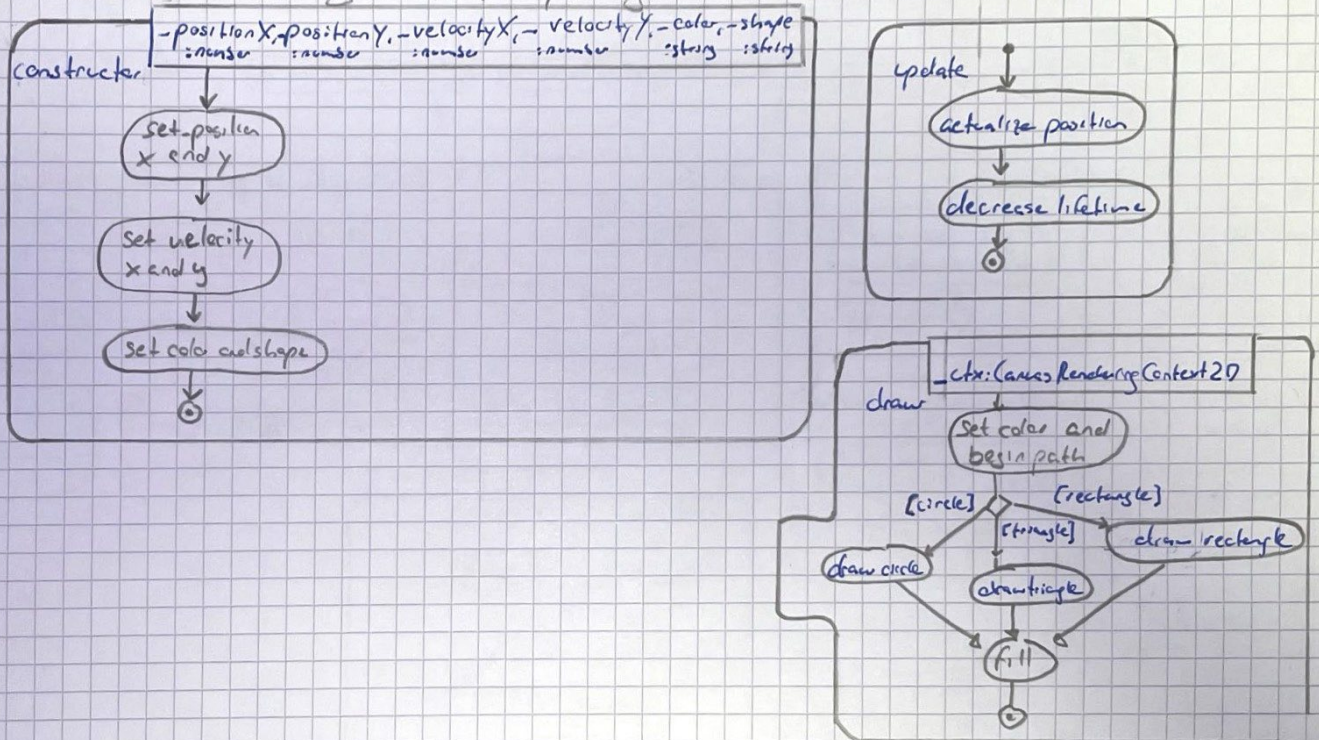 -positionX,-positionY,-velocityX,-velocityY,-color,-shape
:number :number :number :number :string :string
constructor
set position
x and y
set velocity
x and y
set colo and shape
update
actualize position
decrease lifetime
_ctx:CanvasRenderingContext2D
draw
set color and
begin path
[circle]
[triangle]
[rectangle]
draw circle
draw triangle
draw rectangle
fill